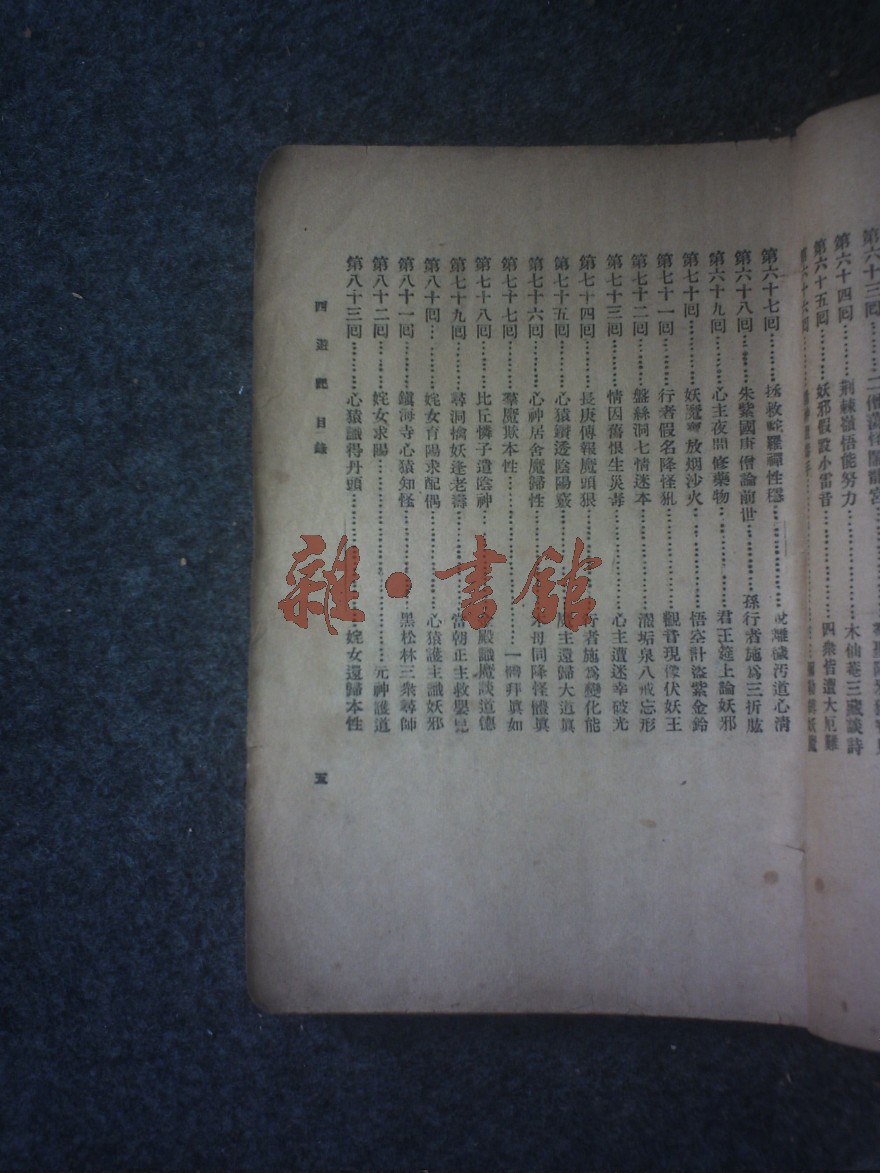 第六十三回
第六十四回………荆棘嶺悟能努力………木仙菴三藏談詩
第六十五回………妖邪假設小雷音………四衆皆遭大厄難
第六十六回
第六十七回………拯救駝羅禪性穩………脫離穢汚道心淸
第六十八回………朱紫國唐僧論前世………孫行者施爲三折肱
第六十九回………心主夜間修藥物………君王筵上論妖邪
第七十回………妖魔 放烟沙火………悟空計盜紫金鈴
第七十一回………行者假名降怪犼………觀音現像伏妖王
第七十二回………盤絲洞七情迷本………濯垢泉八戒忘形
第七十三回………情因舊恨生災毒………心主遭迷幸破光
第七十四回………長庚傳報魔頭狠………行者施爲變化能
第七十五回………心猿鑽透陰陽竅………主還歸大道眞
第七十六回………心神居舍魔歸性………母同降怪體眞
第七十七回………羣魔欺本性………一體拜眞如
第七十八回………比丘憐子遣陰神………殿識魔談道德
第七十九回………尋洞擒妖逢老壽………當朝正主救嬰兒
第八十回………姹女育陽求配偶………心猿護主識妖邪
第八十一回………鎭海寺心猿知怪………黑松林三衆尋師
第八十二回………姹女求陽………元神護道
第八十三回………心猿識得丹頭………姹女還歸本性
西遊記目錄
五
雜·書館